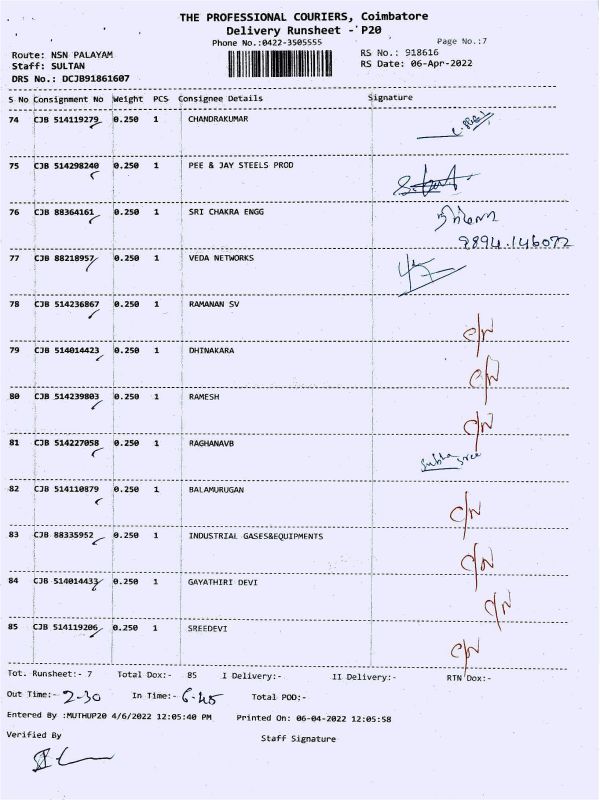 THE PROFESSIONAL COURIERS, Coimbatore
Delivery Runsheet - P20
Phone No.:0422-3505555
Page No.:7
Route: NSN PALAYAM
RS No.: 918616
Staff: SULTAN
RS Date: 06-Apr-2022
DRS No.: DCJB91861607
S No Consignment No Weight PCS Consignee Details Signature
74 CJB 514119279 0.250 1 CHANDRAKUMAR
75 CJB 514298240 0.250 1 PEE & JAY STEELS PROD
76 CJB 88364161 0.250 1 SRI CHAKRA ENGG
9894.146072
77 CJB 88218957 0.250 1 VEDA NETWORKS
78 CJB 514236867 0.250 1 RAMANAN SV C/N
79 CJB 514014423 0.250 1 DHINAKARA C/N
80 CJB 514239803 0.250 1 RAMESH C/N
81 CJB 514227058 0.250 1 RAGHANAVB Subha Sree
82 CJB 514110879 0.250 1 BALAMURUGAN C/N
83 CJB 88335952 0.250 1 INDUSTRIAL GASES&EQUIPMENTS C/N
84 CJB 514014433 0.250 1 GAYATHIRI DEVI C/N
85 CJB 514119206 0.250 1 SREEDEVI C/N
Tot. Runsheet:- 7 Total Dox:- 85 I Delivery:- II Delivery:- RTN Dox:-
Out Time:- 2-30 In Time:- 6-45 Total POD:-
Entered By :MUTHUP20 4/6/2022 12:05:40 PM Printed On: 06-04-2022 12:05:58
Verified By
Staff Signature